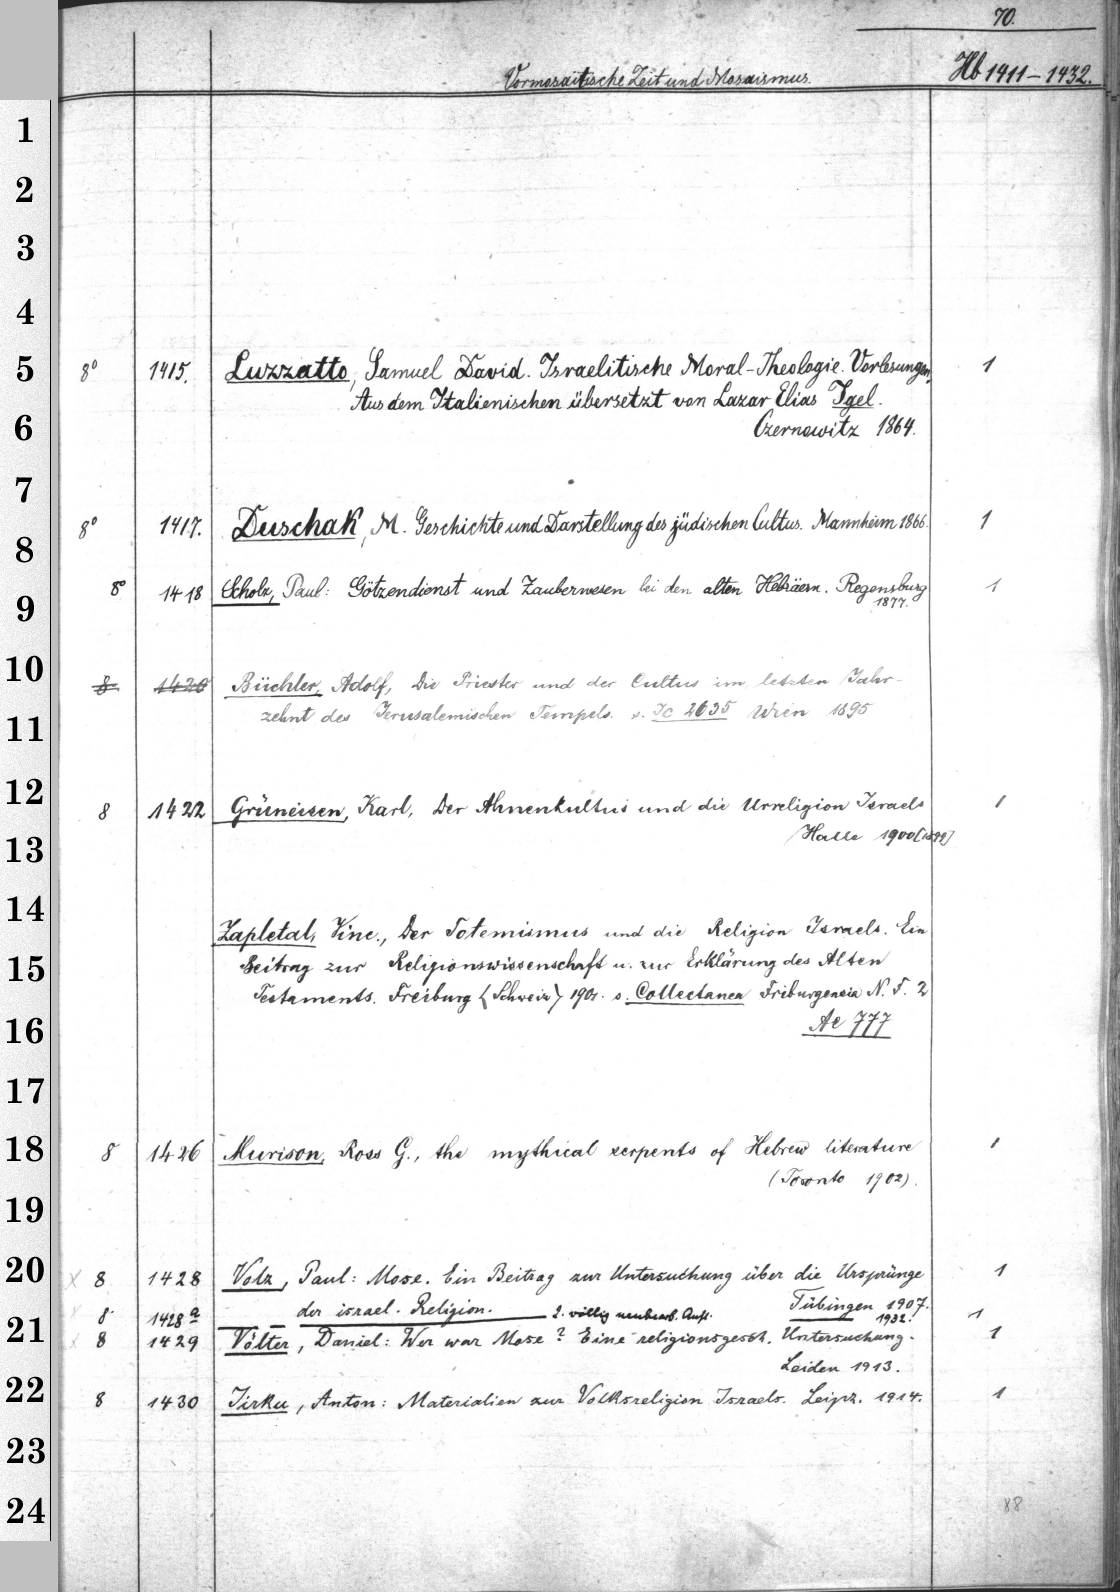 70.
Vormosaitische Zeit und Mosaismus.
Hb 1411-1432.
1
2
3
4
5
8° 1415. Luzzatto, Samuel David. Israelitische Moral-Theologie. Vorlesungen, 1
Aus dem Italienischen übersetzt von Lazar Elias Igel.
6
Czernowitz 1864.
7
8° 1417. Duschak, M. Geschichte und Darstellung des jüdischen Cultus. Mannheim 1866. 1
8
8° 1418 Scholz, Paul: Götzendienst und Zauberwesen bei den alten Hebräern. Regensburg 1
1877.
9
10
8 1420 Büchler, Adolf, Die Priester und der Cultus im letzten Jahr-
zehnt des Jerusalemischen Tempels. s. Jc 2635 Wien 1895
11
12
8 1422 Grüneisen, Karl, Der Ahnenkultus und die Urreligion Israels 1
Halle 1900 [1899]
13
14
Zapletal, Vinc., Der Totemismus und die Religion Israels. Ein
Beitrag zur Religionswissenschaft u. zur Erklärung des Alten
15
Testaments. Freiburg (Schweiz) 1901. s. Collectanea Friburgensia N. F. 2
Ac 777
16
17
18
8 1426 Murison, Ross G., the mythical serpents of Hebrew literature 1
(Toronto 1902).
19
20
x 8 1428 Volz, Paul: Mose. Ein Beitrag zur Untersuchung über die Ursprünge 1
der israel. Religion. Tübingen 1907.
8 1428a — — 2. völlig neubearb. Aufl. 1932. 1
21
x 8 1429 Völter, Daniel: Wer war Mose? Eine religionsgesch. Untersuchung. 1
Leiden 1913.
22
8 1430 Jirku, Anton: Materialien zur Volksreligion Israels. Leipz. 1914. 1
23
24
88